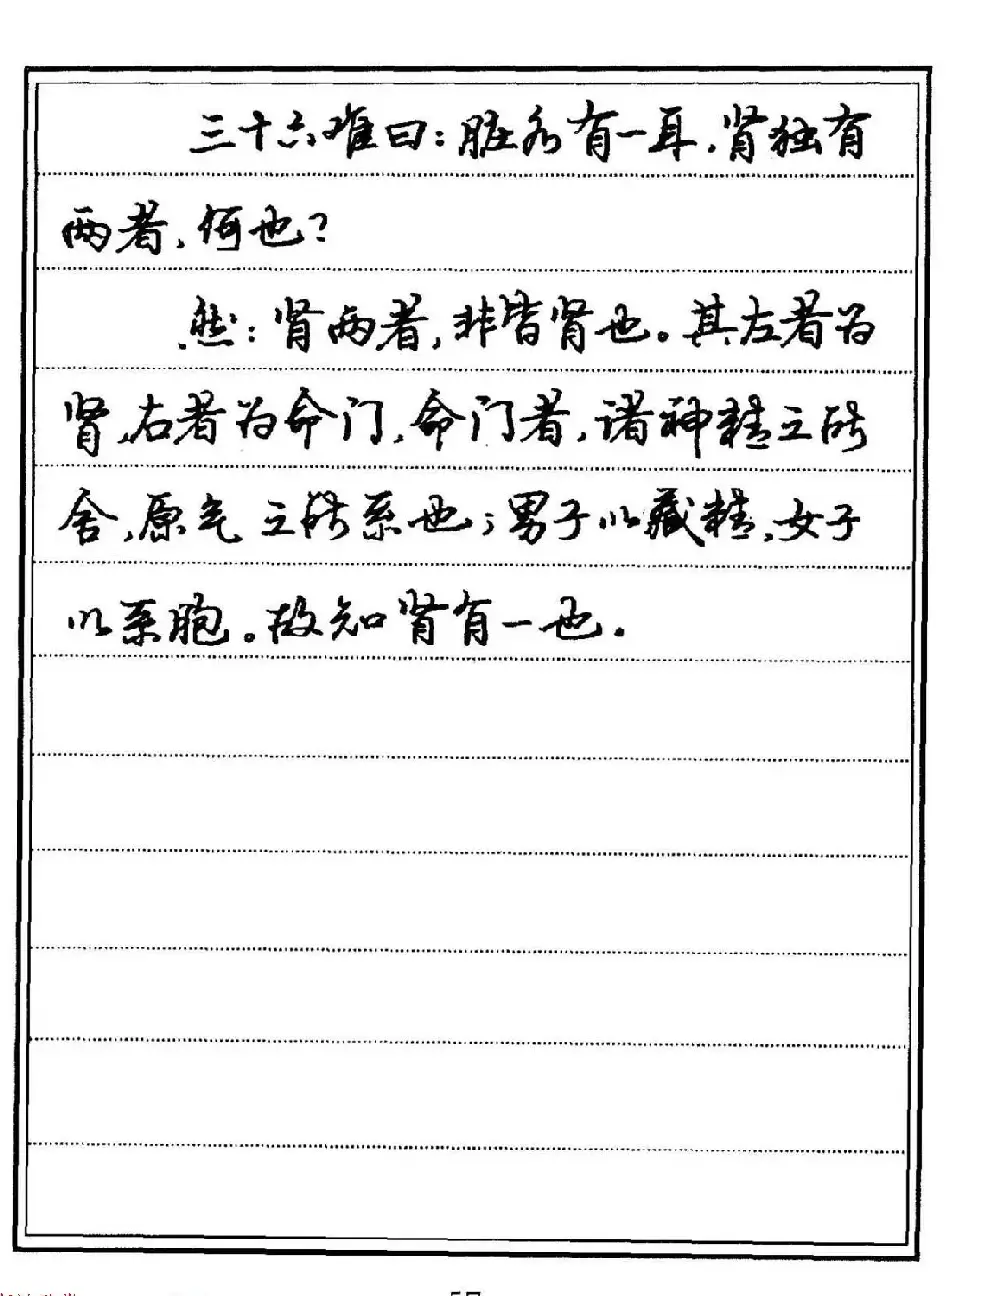 三十六难曰：脏各有一耳，肾独有
两者，何也？
然：肾两者，非皆肾也。其左者为
肾，右者为命门，命门者，诸神精之所
舍，原气之所系也；男子以藏精，女子
以系胞。故知肾有一也．
57